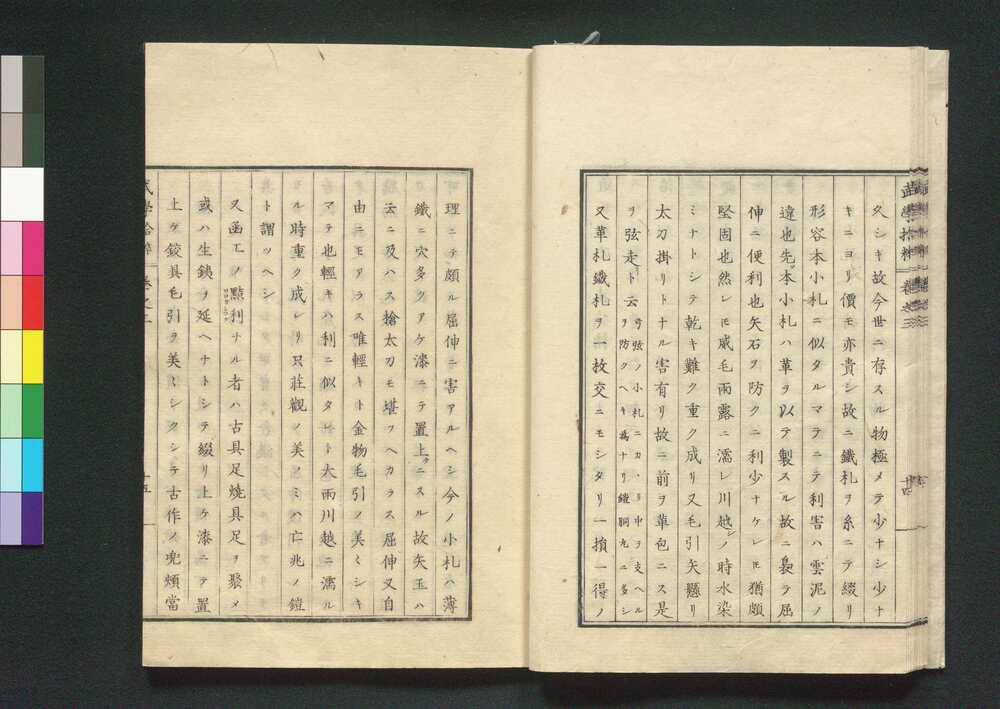 久シキ故今世ニ存スル物極メテ少ナシ少ナ
キニヨリ價モ亦貴シ故ニ鐵札ヲ糸ニテ綴リ
形容本小札ニ似タルマテニテ利害ハ雲泥ノ
違也先ツ本小札ハ革ヲ以テ製スル故ニ裊ラ屈
伸ニ便利也矢石ヲ防クニ利少ナケレモ猶頗
堅固也然レモ威毛雨露ニ濡レ川越シノ時水染
ミナトシテ乾キ難ク重ク成リ又毛引矢懸リ
太刀掛リトナル害有リ故ニ前ヲ革包ニス是
ヲ弦走ト云
弓弦ノ小札ニカヽリ中ヲ支ヘル
ヲ防クヘキ為ナリ鎧胴丸ニ多シ
又革札鐵札ヲ一枚交ニモシタリ一損一得ノ
武學拾粹
十四
可理ニテ頗ル屈伸ニ害アルヘシ今ノ小札ハ薄
鐵ニ穴多クアケ漆ニテ置上ケニスル故矢玉ハ
云ニ及ハス搶太刀モ堪フヘカラス屈伸又自
由ニモアラス唯輕キト金物毛引ノ美々シキ
マテ也輕キハ利ニ似タレト大雨川越ニ濡ル
ル時重ク成レリ只莊觀ノ美ノミハ亡兆ノ鎧
ト謂ツヘシ
又函工ノ黠利ナル者ハ古具足燒具足ヲ聚メ
或ハ生鐵ヲ延ヘナトシテ綴リ上ケ漆ニテ置
上ケ鉸具毛引ヲ美々シクシテ古作ノ兜頰當
武學拾粹
十五